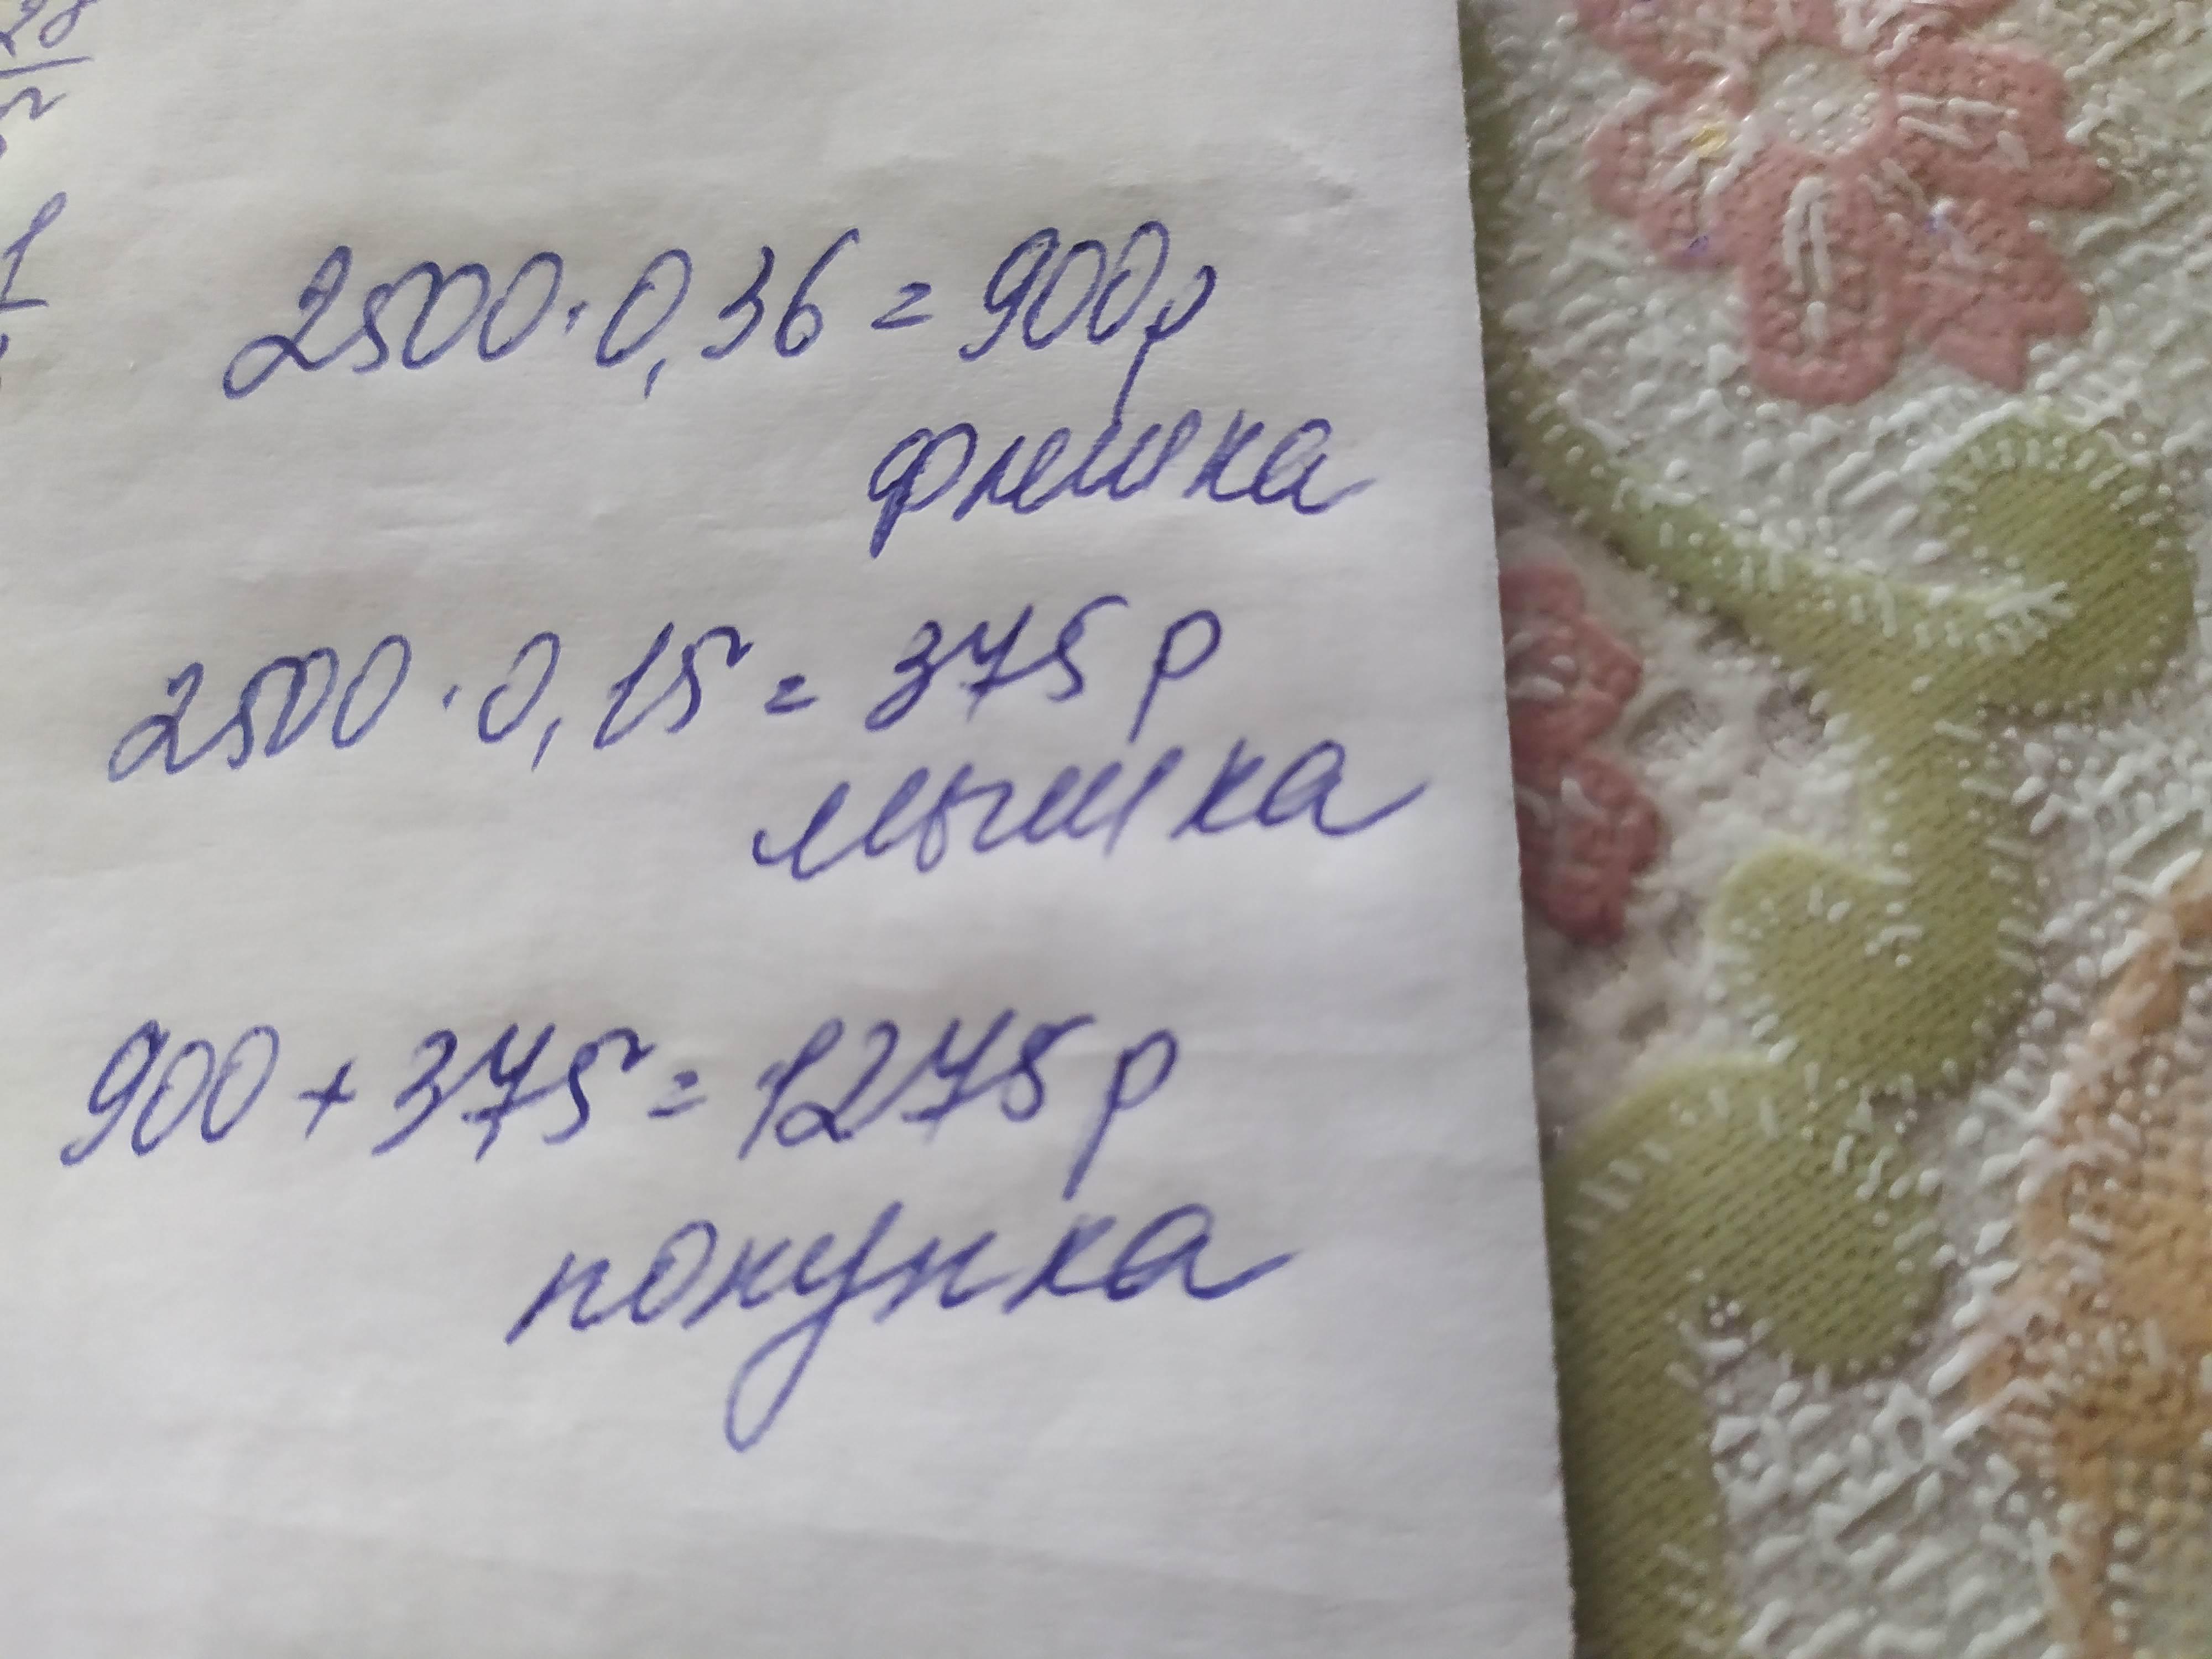 28
5
1
2500·0,36=900р
флешка
2500·0,15=375р
мышка
900+375=1275р
покупка